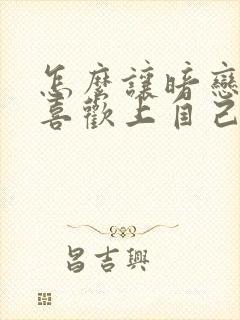 怎麼讓暗戀
喜歡上自己
昌吉興